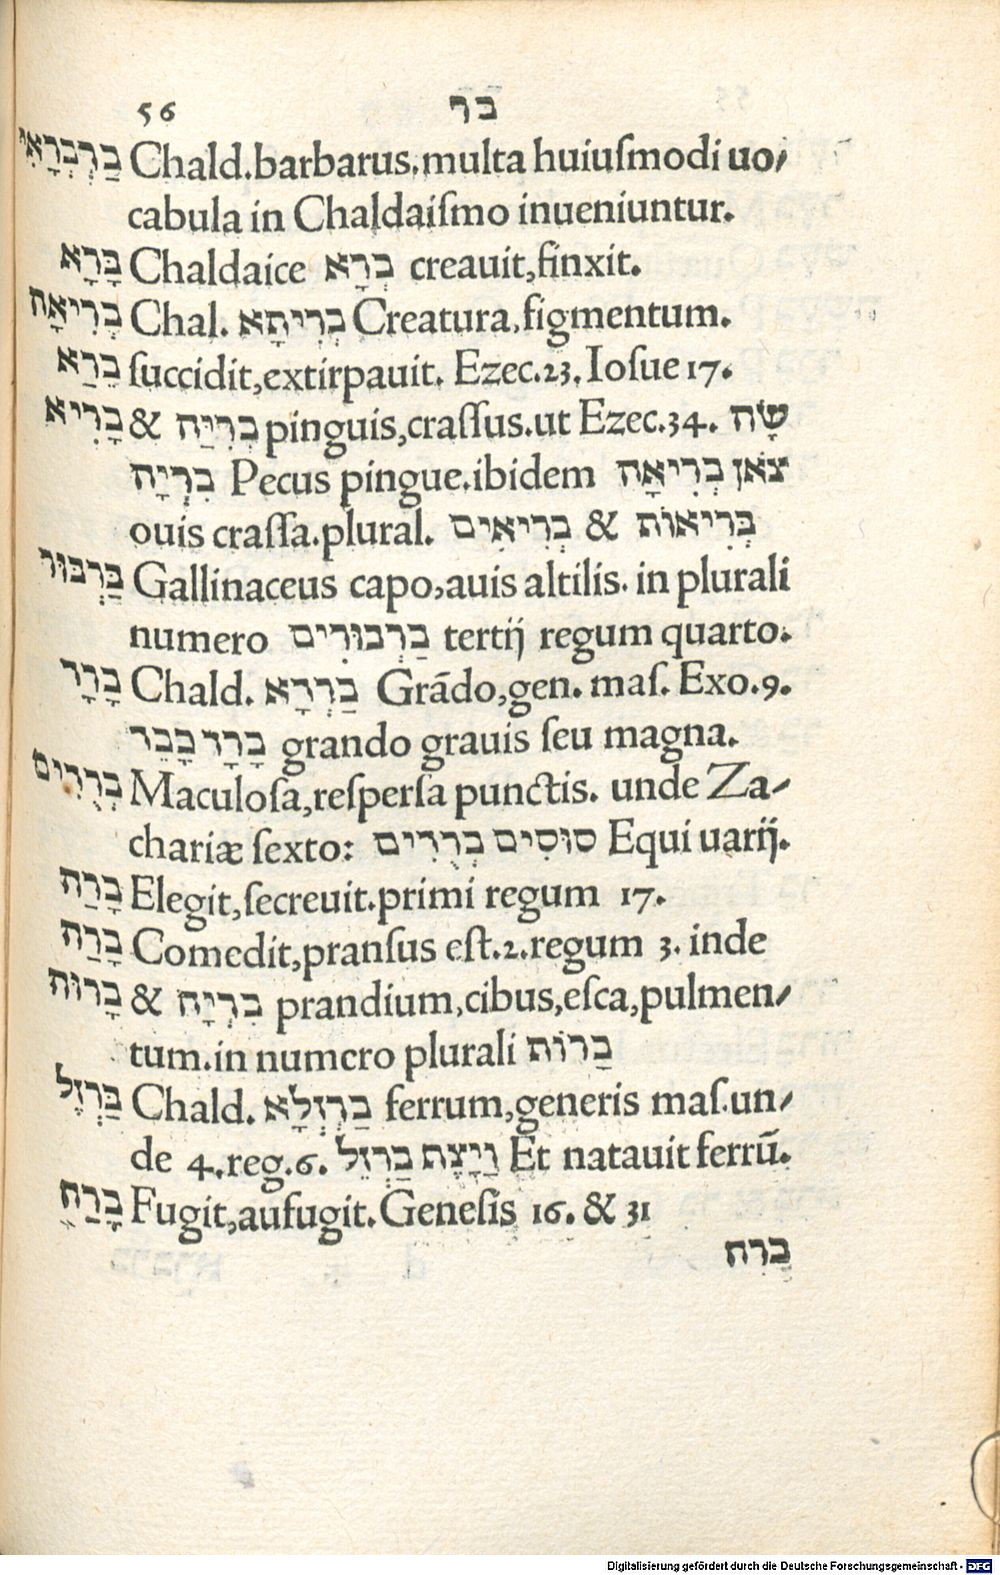 56 בר
בַּרְבְּרָאִי Chald.barbarus.multa huiuſmodi uo⸗
cabula in Chaldaiſmo inueniuntur.
בָּרָא Chaldaice בְּרָא creauit,finxit.
בְּרִיאָה Chal. בְּרִיתָא Creatura,figmentum.
בֵּרַא ſuccidit,extirpauit. Ezec.23. Ioſue 17.
בָּרִיא & בְּרִיַּה pinguis,craſſus.ut Ezec.34. שֶׂה
בִּרְיָה Pecus pingue.ibidem צֹאן בְּרִיאָה
ouis craſſa.plural. בְּרִיאִים & בְּרִיאוֹת
בַּרְבּוּר Gallinaceus capo,auis altilis. in plurali
numero בַּרְבּוּרִים tertij regum quarto.
בָּרָד Chald. בַּרְדָא Grādo,gen. maſ. Exo.9.
בָּרָד כָּבֵד grando grauis ſeu magna.
בְּרֻדִים Maculoſa,reſperſa punctis. unde Za⸗
chariæ ſexto: סוּסִים בְּרֻדִים Equi uarij.
בָּרַה Elegit,ſecreuit.primi regum 17.
בָּרַה Comedit,pranſus eſt.2.regum 3. inde
בָּרוּת & בִּרְיָה prandium,cibus,eſca,pulmen⸗
tum.in numero plurali בָּרוֹת
בַּרְזֶל Chald. בַּרְזְלָא ferrum,generis maſ.un⸗
de 4.reg.6. וַיָּצֶף בַּרְזֶל Et natauit ferrū.
בָּרַח Fugit,aufugit.Geneſis 16. & 31
ברח
Digitalisierung gefördert durch die Deutsche Forschungsgemeinschaft - DFG